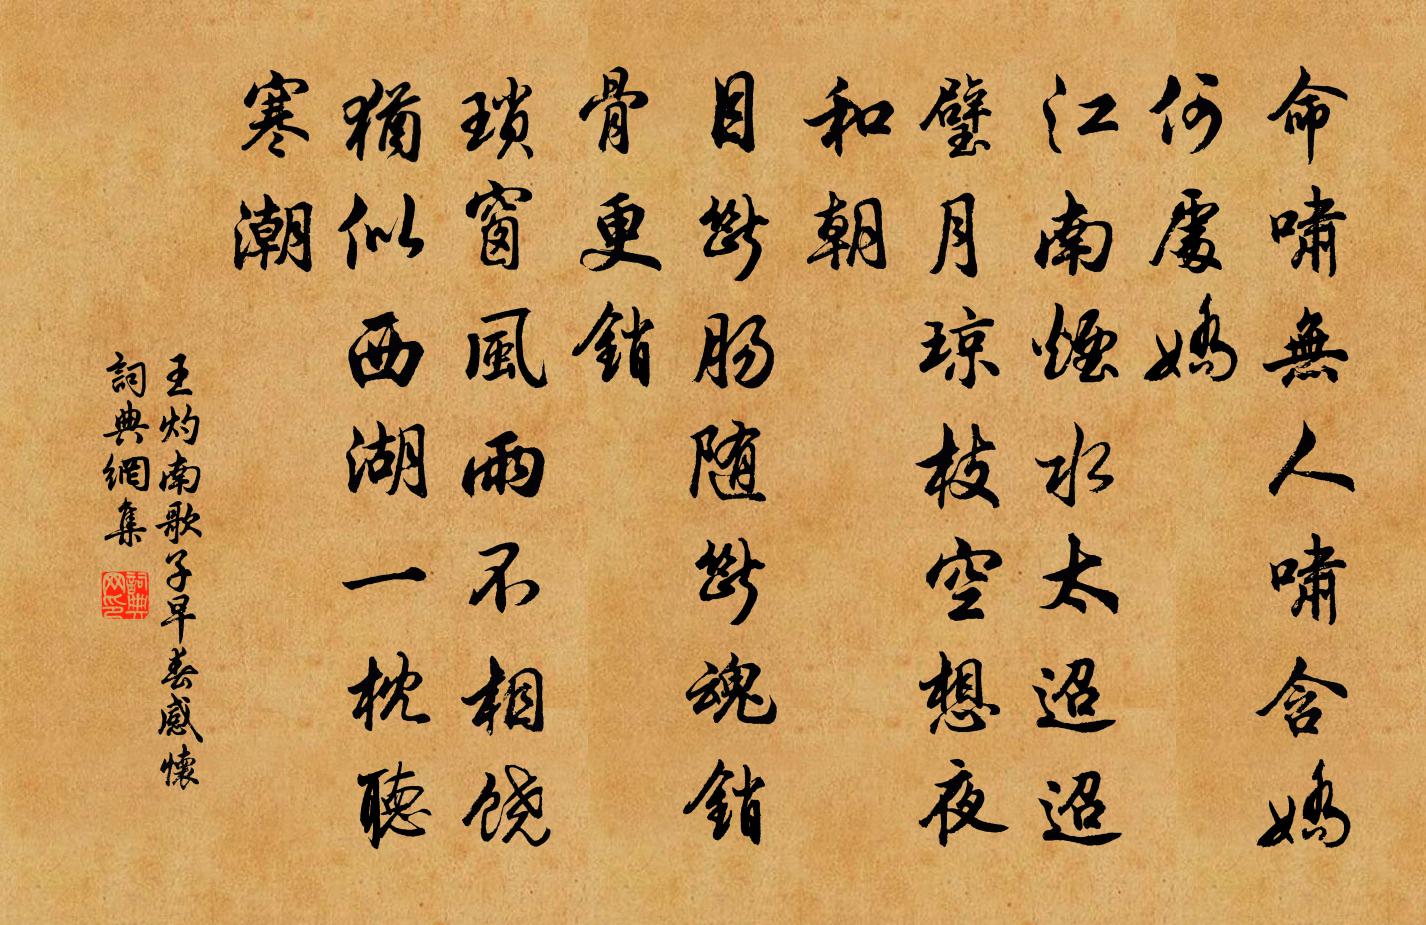 命嘯無人嘯含嬌
何處嬌
江南煙水太迢迢
璧月琼枝空想夜
和朝
目斷肠随斷魂銷
骨更銷
瑣窗風雨不相饶
猶似西湖一枕聽
寒潮
王灼南歌子早春感懷
詞典網集
詞典网印